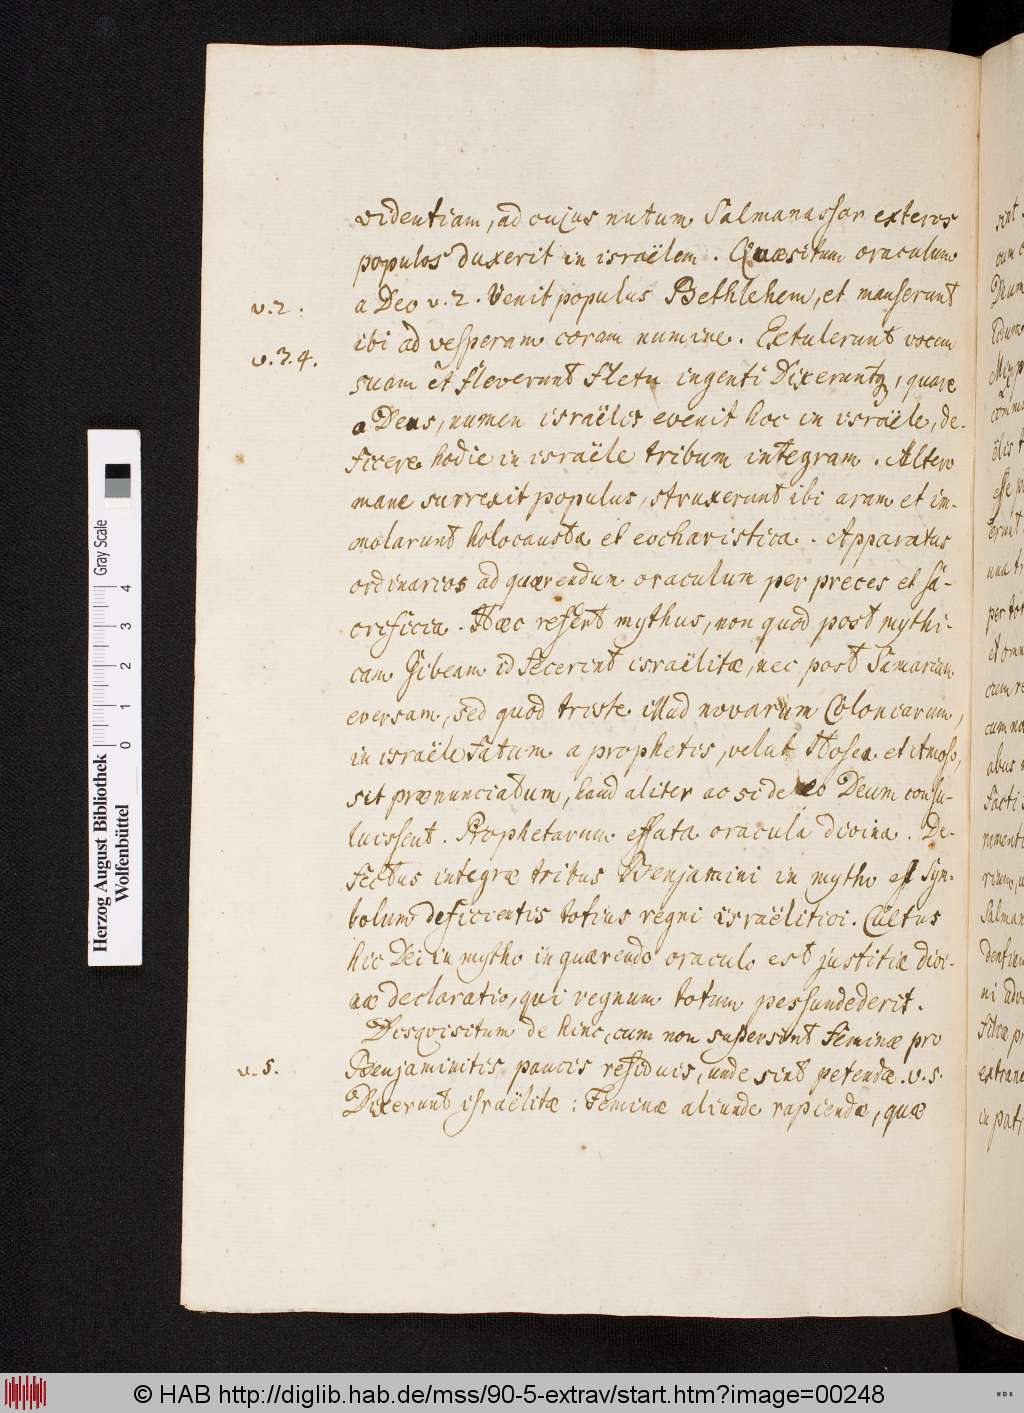 videntiam, ad cujus nutum Salmanassar exteros
populos duxerit in israëlem. Quaesitum oraculum
v.2. a Deo v. 2. Venit populus Bethlehem, et manserunt
ibi ad vesperam coram numine. Extulerunt vocem
v.3.4. suam et fleverunt fletu ingenti Dixeruntq, quare
o Deus, numen israëlis evenit hoc in israële, de-
ficere hodie in israële tribum integram. Altero
mane surrexit populus, struxerunt ibi aram et im-
molarunt holocausta et eucharistica. Apparatus
ordinarios ad quærendum oraculum per preces et sa-
crificia. Hæc refert mythus, non quod post mythi-
cam Gibeam id fecerint israëlitæ, nec post Samariam
eversam, sed quod triste illud novarum Coloniarum,
in israële fatum a prophetis, velut Hosea et Amoso,
sit prænunciatum, haud aliter ac si de eo Deum consu-
luissent. Prophetarum effata oracula divina. De-
fectus integræ tribus Benjamini in mytho est sym-
bolum deficientis totius regni israëlitici. Cultus
hic Dei in mytho in quærendo oraculo est justitiæ divi-
næ declaratio, qui regnum totum pessundederit.
Disquisitum de hinc, cum non supersint feminæ pro
v. 5. Benjaminitis paucis residuis, unde sint petendæ. v. 5.
Dixerunt israëlitæ: Feminæ aliunde rapiendæ, quæ
Herzog August Bibliothek
Wolfenbüttel
0 1 2 3 4 Gray Scale
© HAB http://diglib.hab.de/mss/90-5-extrav/start.htm?image=00248